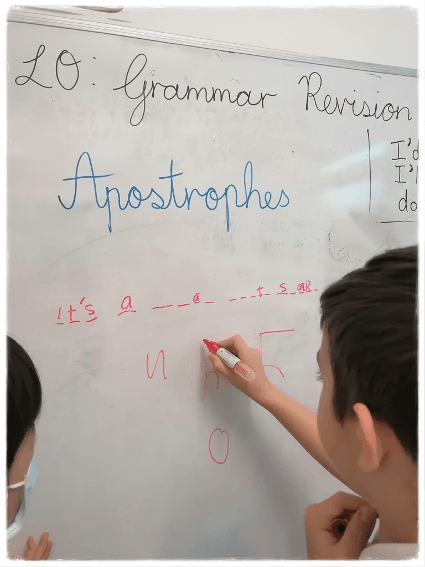 LO: Grammar Revision
Apostrophes
I'd
I'
do
It's a _ _ _ a _ _ _ _ t _ s _ a
n h
o